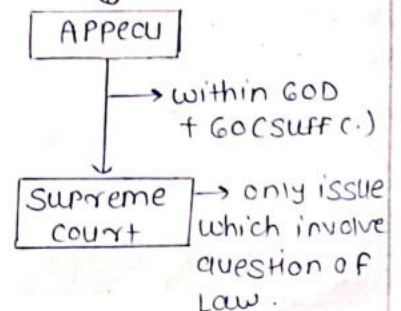 APPecu
within 60D
+ 60(SUFF C.)
Supreme
court
only issue
which involve
question of
Law.